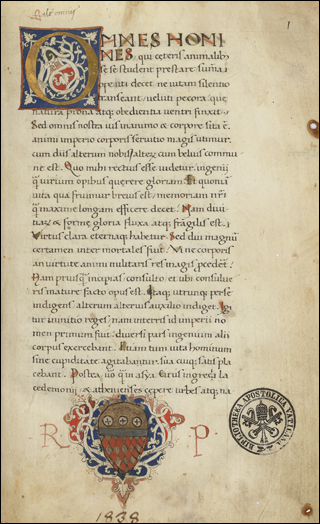 Pal: omnius
1
OMNES HOMI
NES, qui ceteris animalib;
se se student prestare suma i
ope niti decet ne uitam silentio
transeant, ueluti pecora que
natura prona atq; obedientia uentri finxit.
Sed omnis nostra uis in animo & corpore sita e.
animi imperio corporis seruitio magis utimur.
cum diis alterum nobis alter cum beluis commu
ne est. Quo mihi rectius esse uidetur ingenii
q uirium opibus querere gloriam. Et quoniã
uita qua fruimur breuis est, memoriam nri
q maxime longam efficere decet. Nam diui
tiar & forme gloria fluxa atq; fragilis est.
Virtus clara eternaq; habetur. Sed diu magnũ
certamen inter mortales fuit. Vi ne corporis
an uirtute animi militaris res magis procedet.
Nam prius q incipias consulto et ubi consulue
ris mature facto opus est. Itaq; utrunq; per se
indigens alterum alterius auxilio indiget. Ig
itur innitio reges, nam in terris id imperii no
men primum fuit, diuersi pars ingenium alii
corpus exercebant. Etiam tum uita hominum
sine cupiditate agitabatur. sua cuiq; satis pla
cebant. Postea uo q in asya Cirus in grecia la
cedemonii & athenienses cepere urbes atq; na
R P
BIBLIOTHECA APOSTOLICA VATICANA
1838